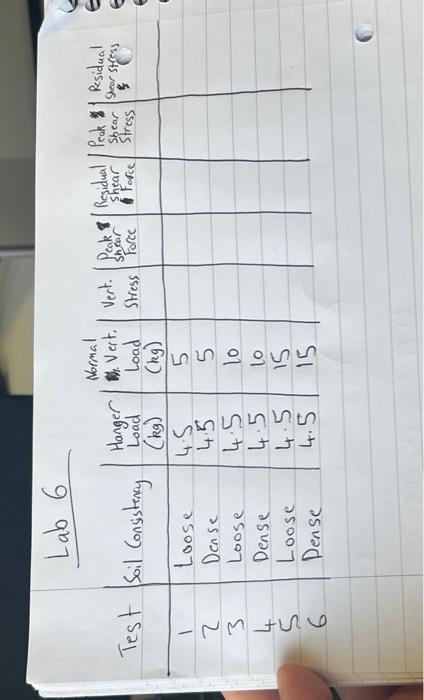 Lab 6
Test | Soil Consistency | Hanger Load (kg) | Normal Vert. Load (kg) | Vert. Stress | Peak Shear Force | Residual Shear Force | Peak Shear Stress | Residual Shear Stress
1 Loose 4.5 5
2 Dense 4.5 5
3 Loose 4.5 10
4 Dense 4.5 10
5 Loose 4.5 15
6 Dense 4.5 15